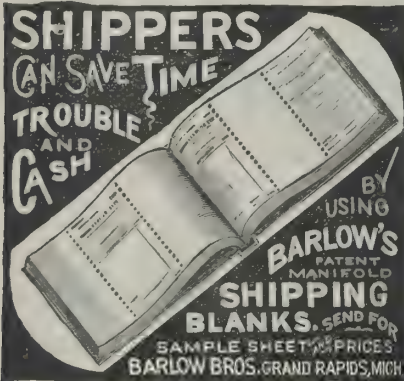 SHIPPERS
CAN SAVE TIME
TROUBLE
AND
CASH
BY
USING
BARLOW'S
PATENT
MANIFOLD
SHIPPING
BLANKS. SEND FOR
SAMPLE SHEET PRICES
BARLOW BROS. GRAND RAPIDS, MICH